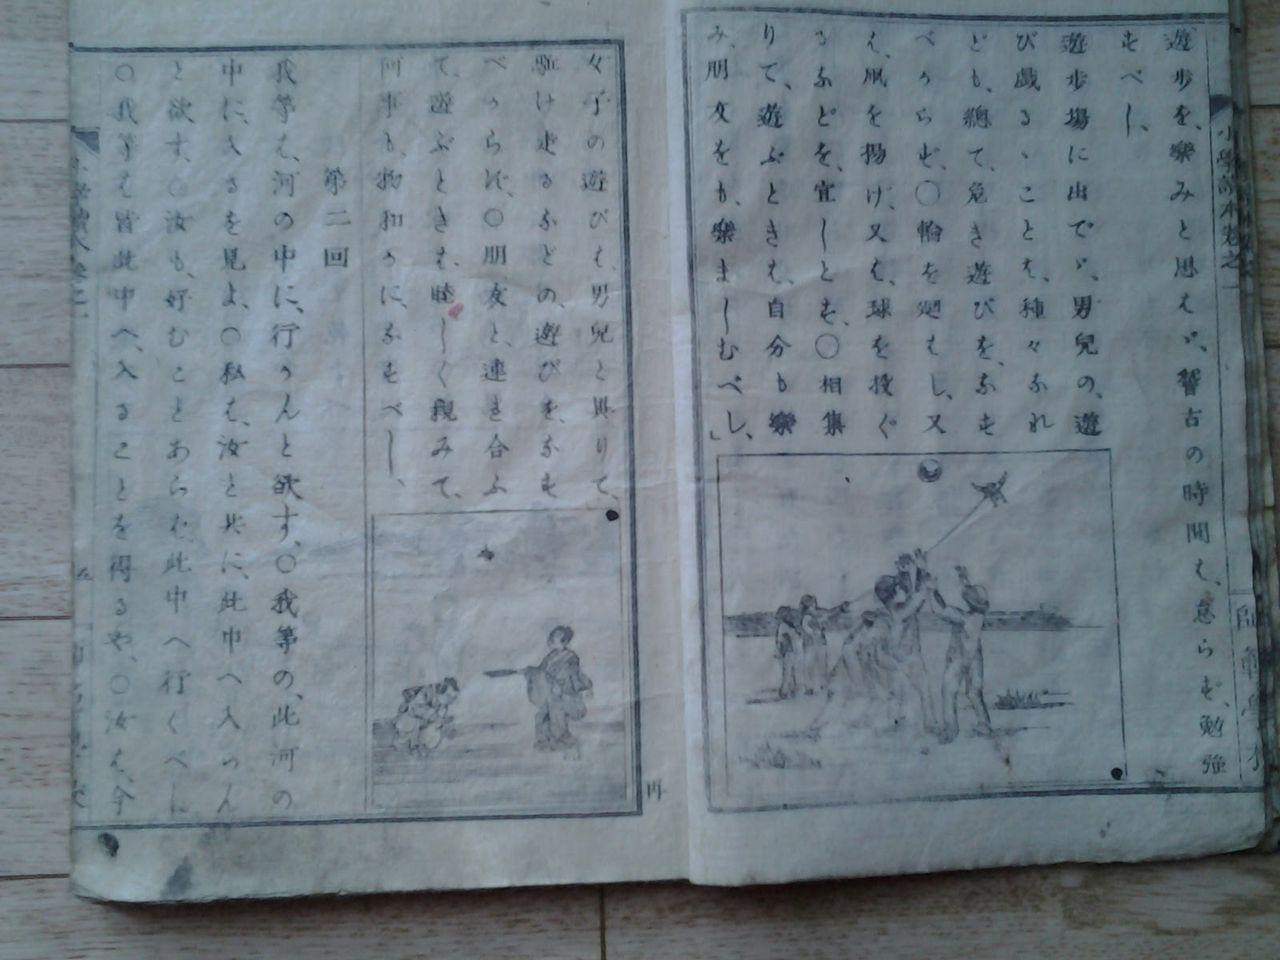 小學讀本卷之一
師範學校
遊歩を、樂みと思はゞ、稽古の時間は、怠らず、勉強
すべし、
遊歩場に出でゝ、男兒の、遊
び戯るゝことは、種々なれ
ども、總て、危き遊びを、なす
べからず、〇輪を廻はし、又
は、凧を揚げ、又は、球を投ぐ
るなどを、宜しとす、〇相集
りて、遊ぶときは、自分も樂
み、朋友をも、樂ましむべし、」
女子の遊びは、男兒と異りて、
駈け走るなどの、遊びを、なす
べからず、〇朋友と、連き合ふ
て、遊ぶときは、睦しく親みて、
何事も、物和かに、なすべし、
第二回
我等は、河の中に、行かんと欲す、〇我等の、此河の
中に、入るを見よ、〇私は、汝と共に、此中へ入らん
と欲す、〇汝も、好むことあらば、此中へ行くべし
〇我等は皆此中へ、入ることを得るや、〇汝は、今